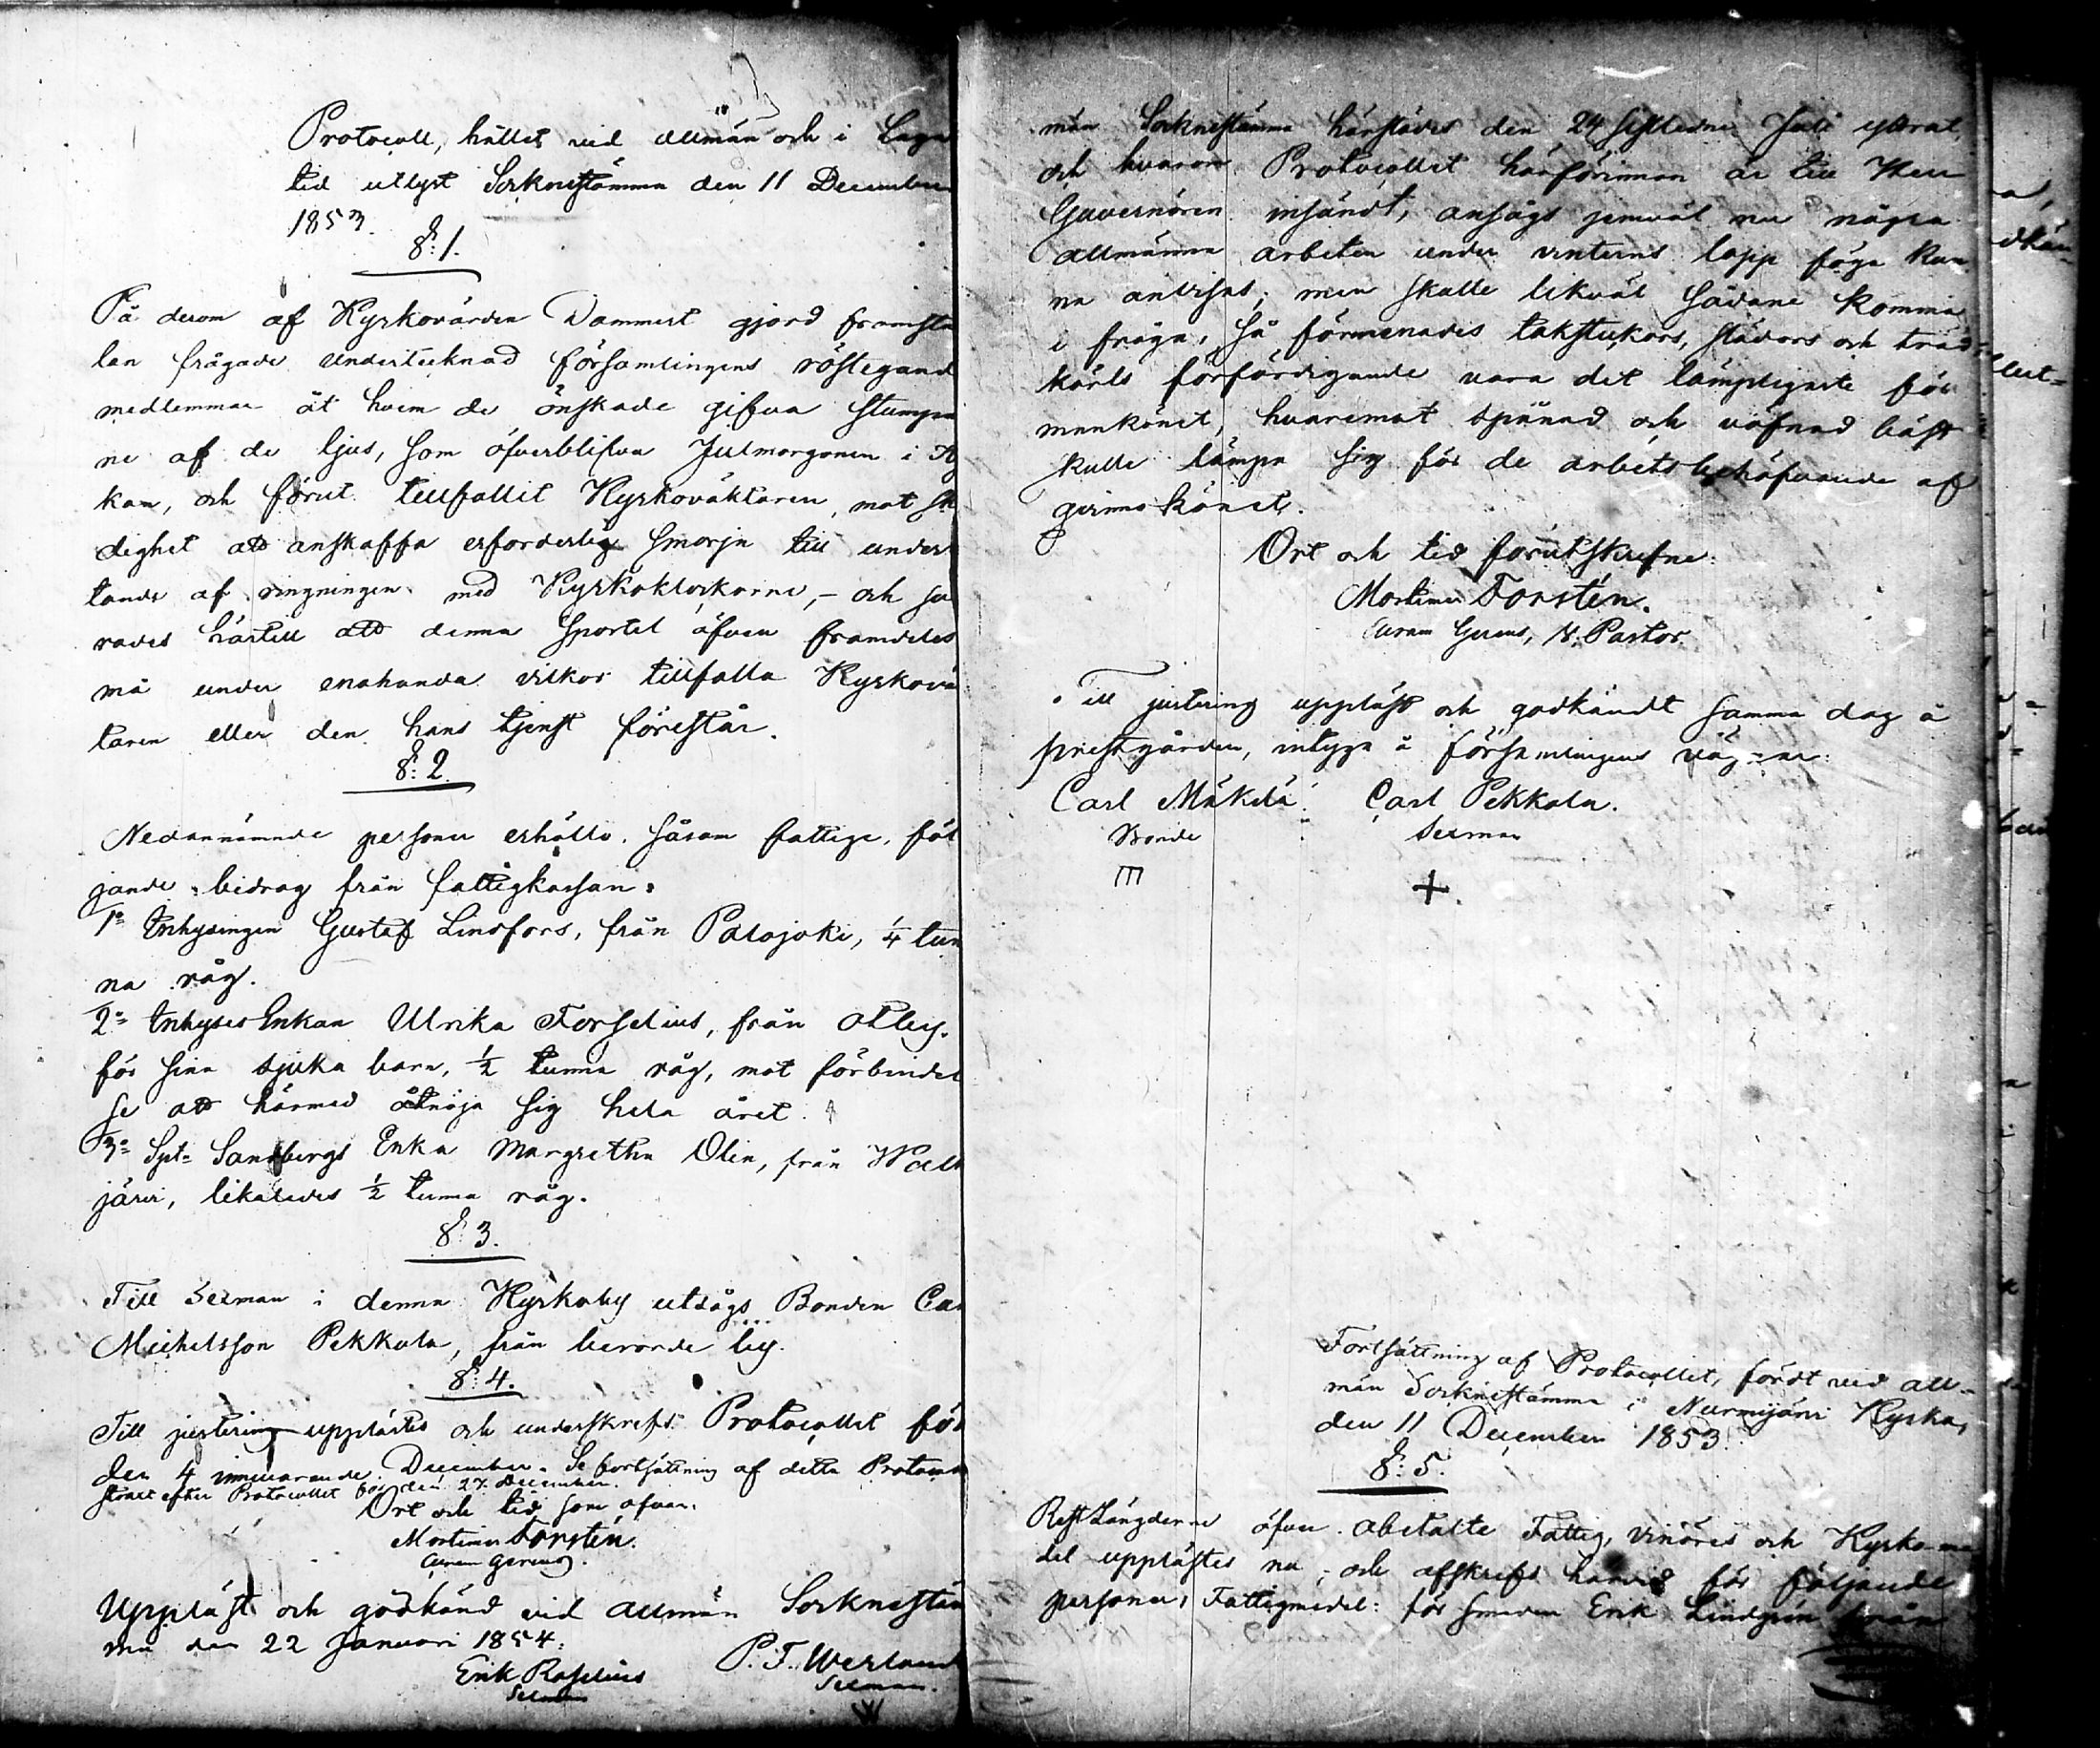 Protocoll, hållet vid allmän och i Laga
tid utlyst Sockenstämma den 11 December
1853.
§: 1.
På derom af Kyrkovärden Dammert gjord framstä
lan frågade undertecknad församlingens röstegand
medlemmar åt hvem de önskade gifva stumpar
ne af de ljus, som öfverblifva Julmorgonen i Ky
kan, och förut tillfallit Kyrkoväktaren, mot sk
dighet att anskaffa erforderlig smörja till under
tande af ringningen med Kyrkoklockorne, – och sva
rades härtill att denna sportel äfven framdeles
må under enahanda vilkor tillfalla Kyrkovä
taren eller den hans tjenst förestår.
§: 2.
Nedannämnde personer erhöllo, såsom fattige, föl
jande bidrag från fattigkassan:
1º Inhysingen Gustaf Lindfors, från Palojoki, ¼ tun
na råg.
2º Inhyses Enkan Ulrika Forselius, från
för sina sjuka barn, ½ tunna råg, mot förbindel
se att härmed åtnöja sig hela året.
3º Sandbergs Enka Margretha Olin, från
järvi, likaledes ½ tunna råg.
§: 3.
Till Sexman i denna Kyrkoby utsågs Bonden Car
Michelsson Pekkala, från berörde by.
§: 4.
Till justering upplästes och underskrefs Protocollet för
den 4 innevarande December. Se fortsättning af detta Protoco
straxt efter Protocollet för den 27 December.
Ort och tid som ofvan.
Mortimer Forstén.
Curam gerens.
Uppläst och godkänd vid allmän Socknestäm
ma den 22 Januari 1854.
Erik Roselius P. F. Werland
Sexman Sexman.
män Socknestämma härstädes den 24 sistledne Juli
och hvarom Protocollet härförinnan är till Herr
Guvernören insändt, ansågs jemväl nu några
allmänna arbeten under vinterns lopp föga kun
na anvisas; men skulle likväl sådane komma
i fråga, så förmenades takstickors, slädors och träd
kärls förfärdigande vara det lämpligaste för
mankönet, hvaremot spånad och väfnad bäst
kulle lämpa sig för de arbetsbehöfvande af
qvinnokönet.
Ort och tid förutskrefne.
Mortimer Forstén.
Curam Gerens, V. Pastor.
Till justering uppläst och godkändt samma dag å
prestgården, intyga å församlingens vägnar:
Carl Mäkelä. Carl Pekkala.
Bonde Sexman
+
Fortsättning af Protocollet, fördt vid all-
män Socknestämma i Nurmijärvi Kyrka,
den 11 December 1853.
§: 5.
Restlängderne öfver obetalte Fattig, vinöres och Kyrko me
del upplästes nu, och afskrefs härvid för följande
personer, Fattigmedel: för smeden Erik Lindgrén från